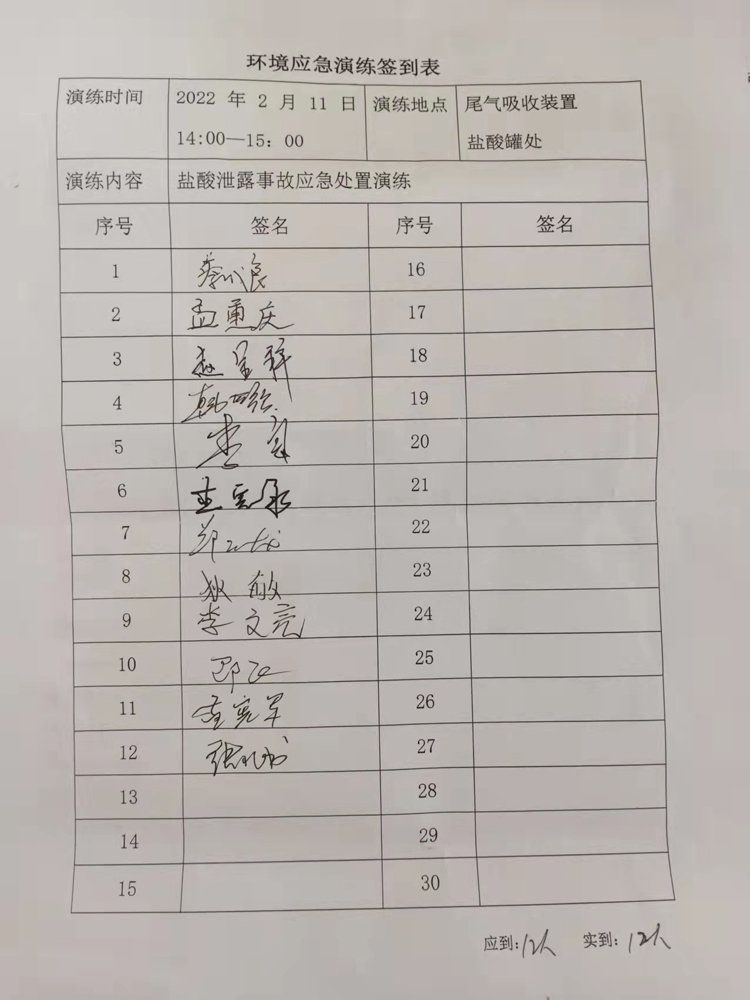 环境应急演练签到表
演练时间 2022 年 2 月 11 日 演练地点 尾气吸收装置
14:00—15：00 盐酸罐处
演练内容 盐酸泄露事故应急处置演练
序号 签名 序号 签名
1 16
2 孟重庆 17
3 18
4 19
5 20
6 21
7 22
8 狄敏 23
9 李文亮 24
10 25
11 26
12 27
13 28
14 29
15 30
应到:12人 实到:12人